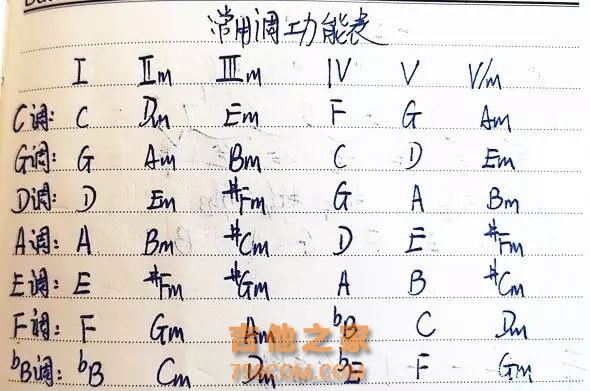 常用调功能表
I IIm IIIm IV V VIm
C调: C Dm Em F G Am
G调: G Am Bm C D Em
D调: D Em #Fm G A Bm
A调: A Bm #Cm D E #Fm
E调: E #Fm #Gm A B #Cm
F调: F Gm Am bB C Dm
吉他之家
bB调: bB Cm Dm bE F Gm
798COM.COM